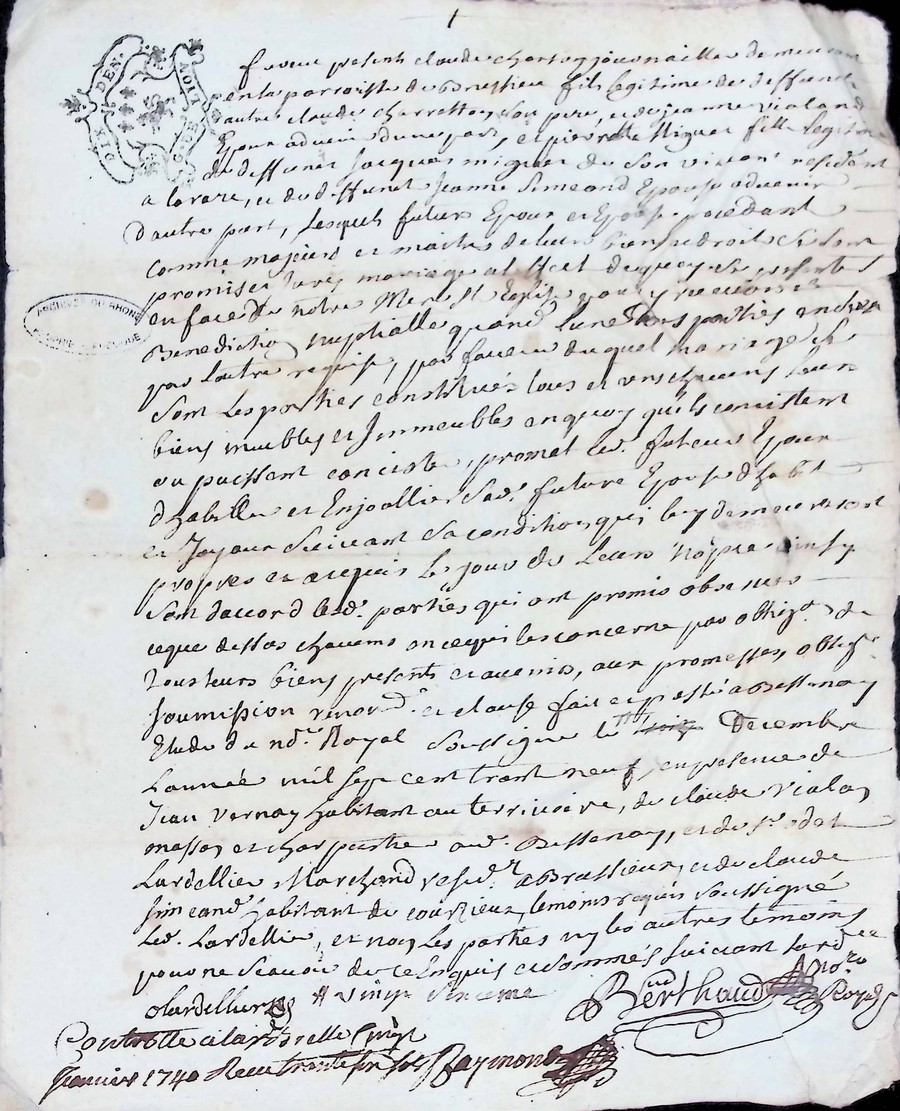 1
DIX DEN
GNR LION
furent presents claude charreton journaillier demeurant
en la parroisse de Brussieu fils legitime de deffunct
autre claude charretton son pere, et de jeanne vialand
Epoux advenir d'une part, et pierrette Miguet fille legitime
de deffunct Jacques miguet de son vivant residant
a la raze, et de deffunct Jeanne Simeand Epouse advenir
d'autre part, Lesquels futurs Epoux et Epouse procedant
comme majeurs et maitres de leurs biens et droits se sont
promis et Jurez mariage a l'effet de quoy se presenter
en face de notre Mere Ste Eglise pour y recevoir la
Benediction nuptialle quand l'une des parties en sera
par l'autre requise, par faveur duquel mariage se
sont les parties constitués tous et un chacuns leurs
biens meubles et Immeubles en quoy qu'ils consistent
ou puissent concister, promet led. futeur Epoux
d'habiller et Enjoallier sad. future Epouse d'habits
et Joyaux suivant sa condition qui luy demeureront
propres et acquis le jour de leurs nopces ainsy
sont d'accord lesd. parties qui ont promis observer
ce que dessus chacuns en ce qui les concerne par obligaon de
tous leurs biens presents et avenir, aux promesses, oblig.
soumission renond. et clause fait et passé a Bessenay
Etude du nore. Royal soussigné le # Decembre
L'année mil sept cent trante neuf, en presence de
Jean vernay habitant au territoire, de claude vialan
masson et charpentier aud. Bessenay, et de sr.
Lardellier Marchand resid.t a Brussieux, et de claude
simeand habitant de courzieux, temoins requis soussigné
led. Lardellier, et non les parties ny les autres temoins
pour ne scavoir de ce Enquis et sommés suivant l'ordce
OLardellier # vingt sixieme
Berthaud nore
Royal
Controllé a Larbrelle le
Janvier 1740 Receu trante six sols Raymond
ARCHIVES DU RHONE